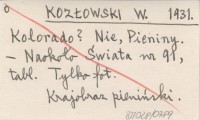 KOZŁOWSKI W. 1931.
Kolorado? Nie, Pieniny.
– Naokoło Świata nr 91,
tabl. Tylko fot.
Krajobraz pieniński.